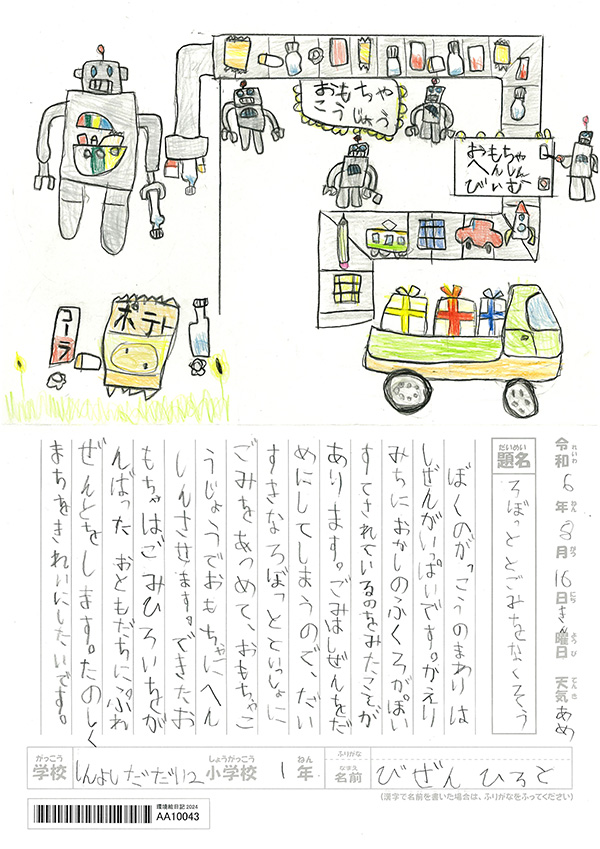 おもちゃ
こうじょう
おもちゃ
へんしん
びいむ
コーラ
ポテト
令和6年8月16日きん曜日 天気あめ
れいわ ねん がつ にち ようび てんき
だいめい
題名 ろぼっととごみをなくそう
ぼくのがっこうのまわりは
しぜんがいっぱいです。かえり
みちにおかしのふくろがぽい
すてされているのをみたことが
あります。ごみはしぜんをだ
めにしてしまうので、だい
すきなろぼっとといっしょに
ごみをあつめて、おもちゃこ
うじょうでおもちゃにへん
しんさせます。できたお
もちゃはごみひろいをが
んばったおともだちにぷれ
ぜんとをします。たのしく
まちをきれいにしたいです。
がっこう しょうがっこう ねん ふりがな
学校 しんよしだだいに 小学校 1年 なまえ 名前 びぜん ひろと
(漢字で名前を書いた場合は、ふりがなをふってください)
環境絵日記2024
AA10043